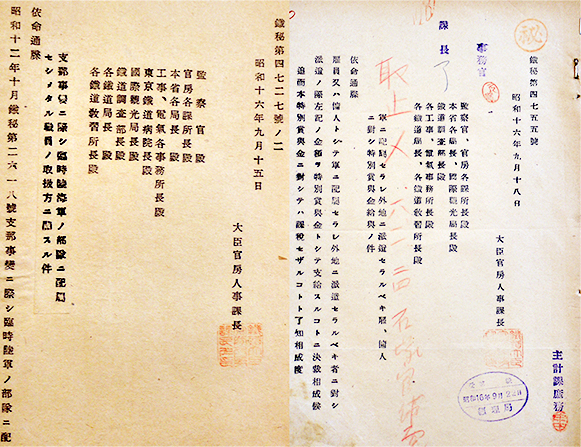 秘
鐵秘第四七五五號
昭和十六年九月十八日
大臣官房人事課長
事務官
課長
監察官、官房各課所長殿
本省各局長、國際觀光局長殿
鐵道調査部長殿
各工事、電氣事務所長殿
各鐵道局長、各鐵道教習所長殿
軍ニ配屬セラレ外地ニ派遣セラルベキ雇、傭人
ニ對シ特別賞與金給與ノ件
依命通牒
雇員又ハ傭人トシテ軍ニ配屬セラレ外地ニ派遣セラルベキ者ニ對シ
派遣ノ際左記ノ金額ヲ特別賞與金トシテ支給スルコトニ決裁相成候
追而本特別賞與金ニ對シテハ課税セザルコトト了知相成度
取止メ
主計課庶務
昭和16年9月22日
鐵秘第四七二七號ノ二
昭和十六年九月十五日
大臣官房人事課長
監察官殿
官房各課所長殿
本省各局長殿
工事、電氣各事務所長殿
東京鐵道病院長殿
國際觀光局長殿
鐵道調査部長殿
各鐵道局長殿
各鐵道教習所長殿
支那事變ニ際シ臨時陸海軍ノ部隊ニ配屬
セシメタル職員ノ取扱方ニ關スル件
依命通牒
昭和十二年十月鐵秘第二六一八號支那事變ニ際シ臨時陸軍ノ部隊ニ配